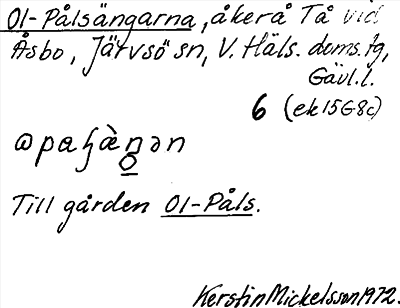 Ol-Pålsängarna, åkerå Tå vid
Åsbo, Järvsö sn, V. Häls. doms. tg,
Gävl. l.
6 (ek 15G8c)
Till gården Ol-Påls.
Kerstin Mickelsson 1972.